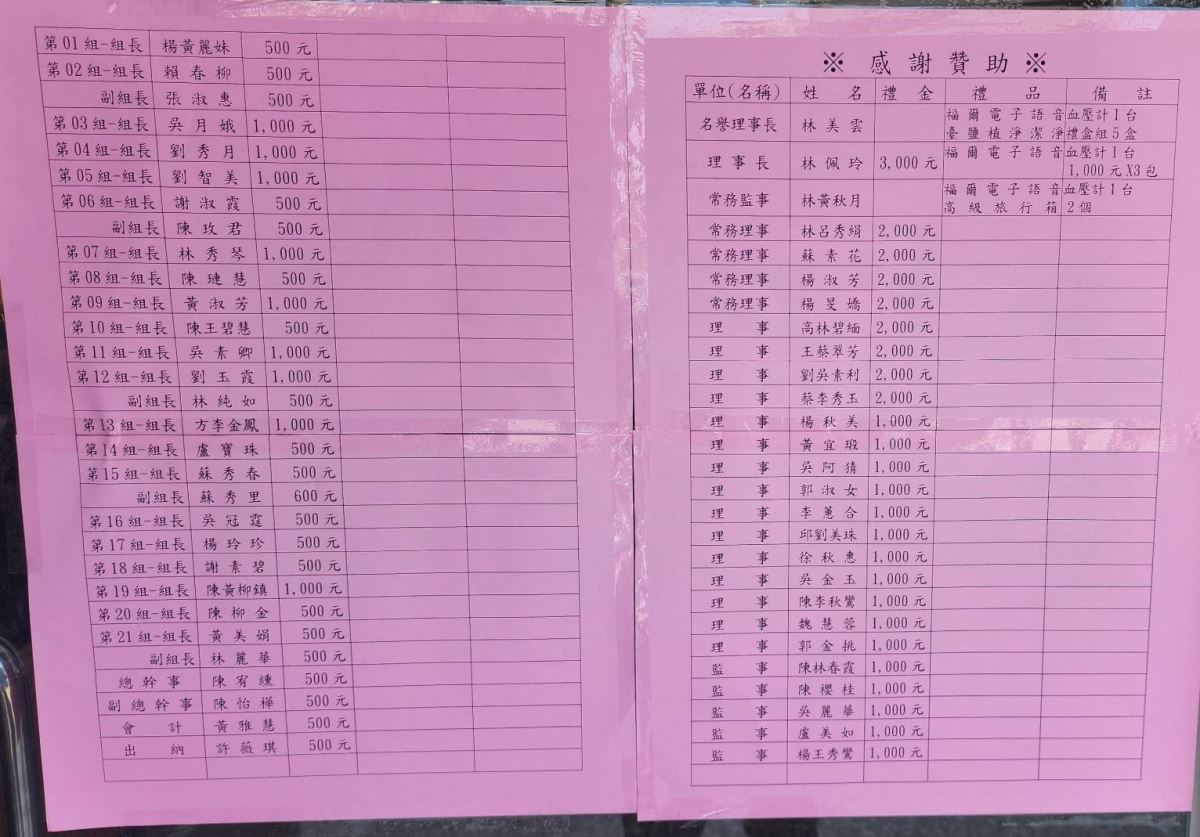 第01組-組長 楊黃麗妹 500元
第02組-組長 賴春柳 500元
副組長 張淑惠 500元
第03組-組長 吳月娥 1,000元
第04組-組長 劉秀月 1,000元
第05組-組長 劉智美 1,000元
第06組-組長 謝淑霞 500元
副組長 陳玫君 500元
第07組-組長 林秀琴 1,000元
第08組-組長 陳琎慧 500元
第09組-組長 黃淑芳 1,000元
第10組-組長 陳王碧慧 500元
第11組-組長 吳素卿 1,000元
第12組-組長 劉玉霞 1,000元
副組長 林純如 500元
第13組-組長 方李金鳳 1,000元
第14組-組長 盧寶珠 500元
第15組-組長 蘇秀春 500元
副組長 蘇秀里 600元
第16組-組長 吳冠霆 500元
第17組-組長 楊玲珍 500元
第18組-組長 謝素碧 500元
第19組-組長 陳黃柳鎮 1,000元
第20組-組長 陳柳金 500元
第21組-組長 黃美娟 500元
副組長 林麗華 500元
總幹事 陳宥纁 500元
副總幹事 陳怡樺 500元
會計 黃雅慧 500元
出納 許薇琪 500元
※ 感謝贊助 ※
單位(名稱) 姓名 禮金 禮品 備註
名譽理事長 林美雲 福爾電子語音血壓計1台
臺鹽植淨潔淨禮盒組5盒
理事長 林佩玲 3,000元 福爾電子語音血壓計1台
1,000元X3包
常務監事 林黃秋月 福爾電子語音血壓計1台
高級旅行箱2個
常務理事 林呂秀絹 2,000元
常務理事 蘇素花 2,000元
常務理事 楊淑芳 2,000元
常務理事 楊旻嬌 2,000元
理事 高林碧緬 2,000元
理事 王蔡翠芳 2,000元
理事 劉吳素利 2,000元
理事 蔡李秀玉 2,000元
理事 楊秋美 1,000元
理事 黃宜瑕 1,000元
理事 吳阿猜 1,000元
理事 郭淑女 1,000元
理事 李蕙合 1,000元
理事 邱劉美珠 1,000元
理事 徐秋惠 1,000元
理事 吳金玉 1,000元
理事 陳李秋鶯 1,000元
理事 魏慧蓉 1,000元
理事 郭金挑 1,000元
監事 陳林春霞 1,000元
監事 陳櫻桂 1,000元
監事 吳麗華 1,000元
監事 盧美如 1,000元
監事 楊王秀鶯 1,000元